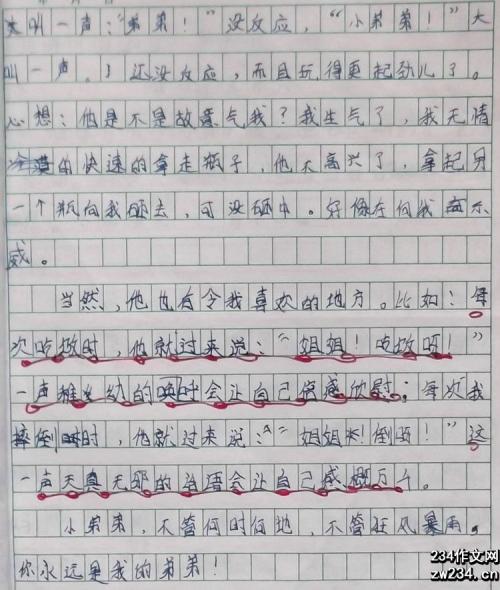 大叫一声:“弟弟！”没反应，“小弟弟！”大
叫一声。还没反应，而且玩得更起劲儿了。
心想：他是不是故意气我？我生气了，我无情
的快速的拿走瓶子，他不高兴了，拿起另
一个瓶向我砸去，可没砸中。好像在向我示
威。
当然，他也有令我喜欢的地方。比如：每
次吃饭时，他就过来说：“姐姐！吃饭呀！”
一声稚幼的唤时会让自己倍感欣慰；每次我
摔倒时，他就过来说：“姐姐！倒呀！”这
一声天真无邪的话语会让自己感概万千。
小弟弟，不管何时何地，不管狂风暴雨。
你永远是我的弟弟！
234作文网
zw234.cn